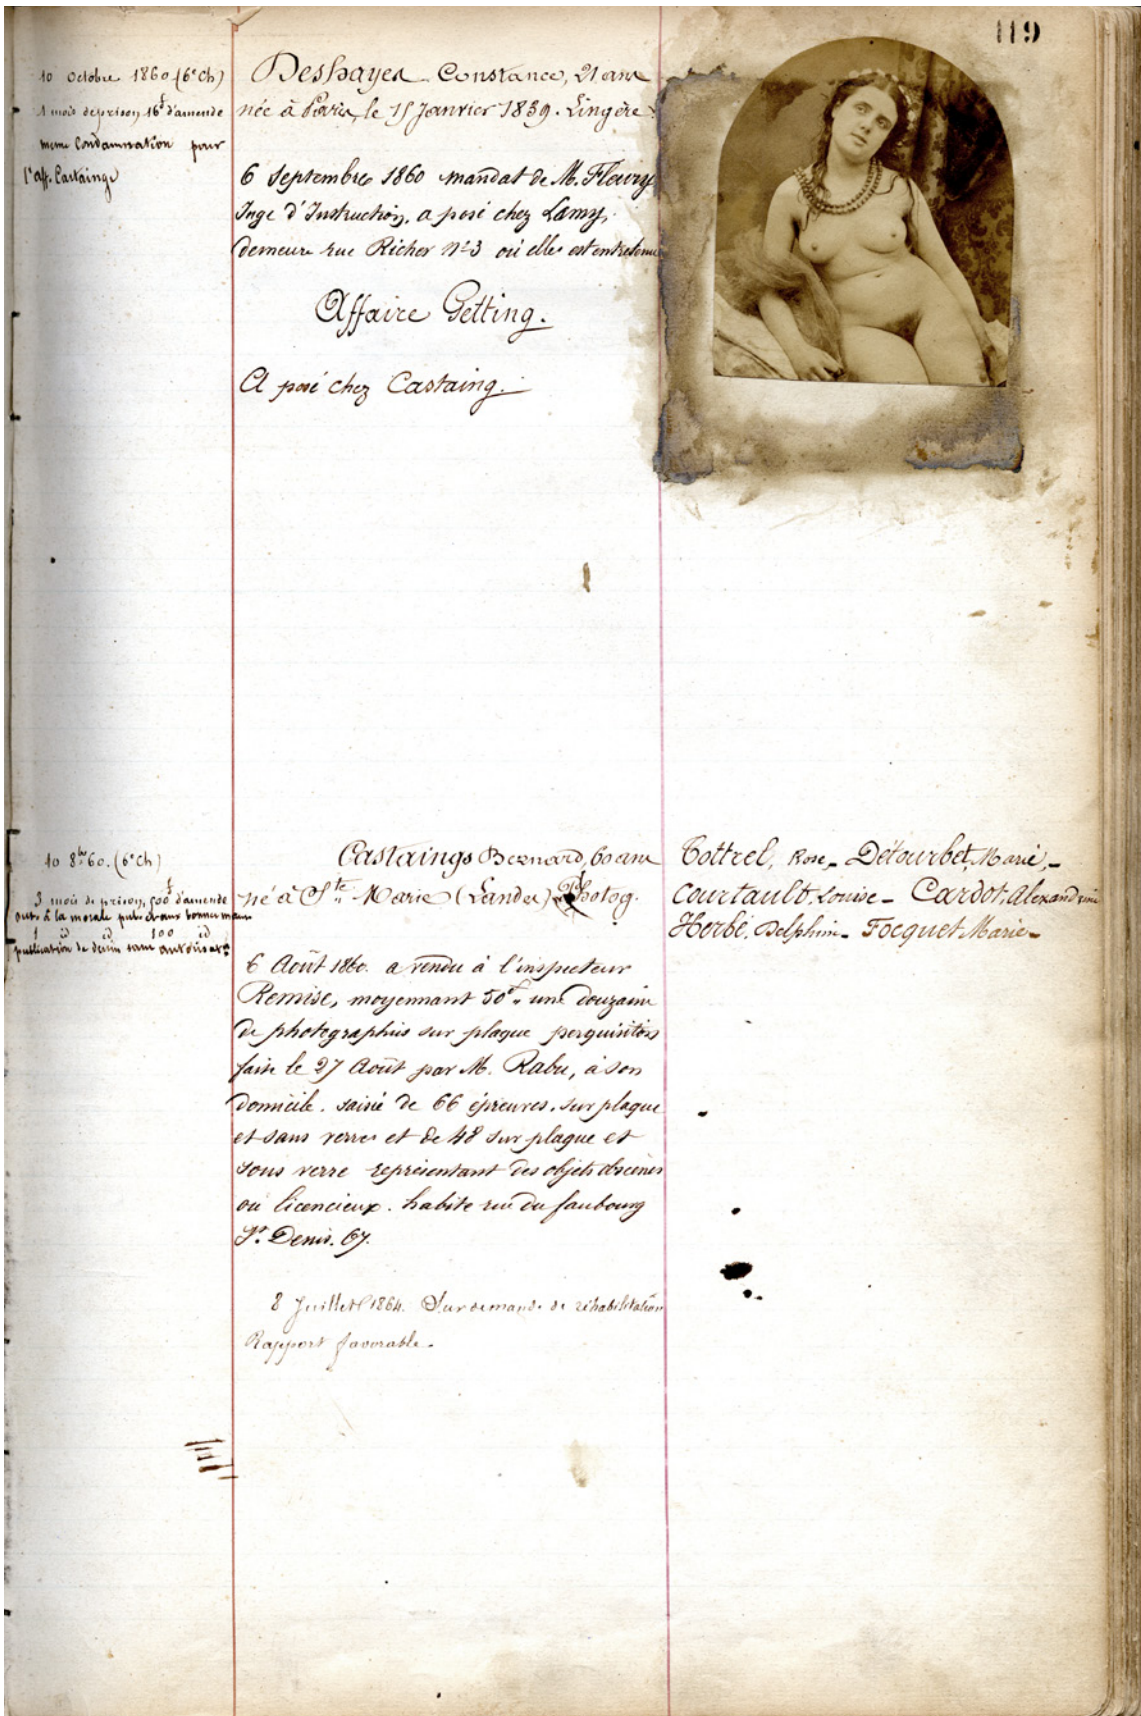 119
10 Octobre 1860 (6e Ch)
1 mois de prison, 16f d'amende
meme Condamnation pour
l'aff. Castaings
Deshayes Constance, 21 ans
née à Paris, le 15 Janvier 1839. Lingère
6 Septembre 1860 mandat de M. Fleury
Juge d'Instruction, a posé chez Lamy,
demeure rue Richer No 3 où elle est entretenue
Affaire Getting.
A posé chez Castaing.
10 8bre 60. (6e Ch)
3 mois de prison, 500f d'amende
outr. à la morale pub. et aux bonnes mœurs
1 id id 100 id
publication de dessin sans autorisatn
Castaings Bernard, 60 ans
né à Ste Marie (Landes) Photog.
6 Août 1860. a vendu à l'inspecteur
Remise, moyennant 50f une douzaine
de photographies sur plaque perquisition
faite le 27 Août par M. Rabu, à son
domicile. saisie de 66 épreuves. sur plaque
et sans verre et de 48 sur plaque et
sous verre représentant des objets obscènes
ou licencieux. habite rue du faubourg
St. Denis. 67.
8 Juillet 1864. Sur demande de réhabilitation
Rapport favorable.
Cottrel, Rose, - Détourbet, Marie, -
Courtault, Louise - Cardot, Alexandrine
Herbé, Delphine - Focquet Marie -